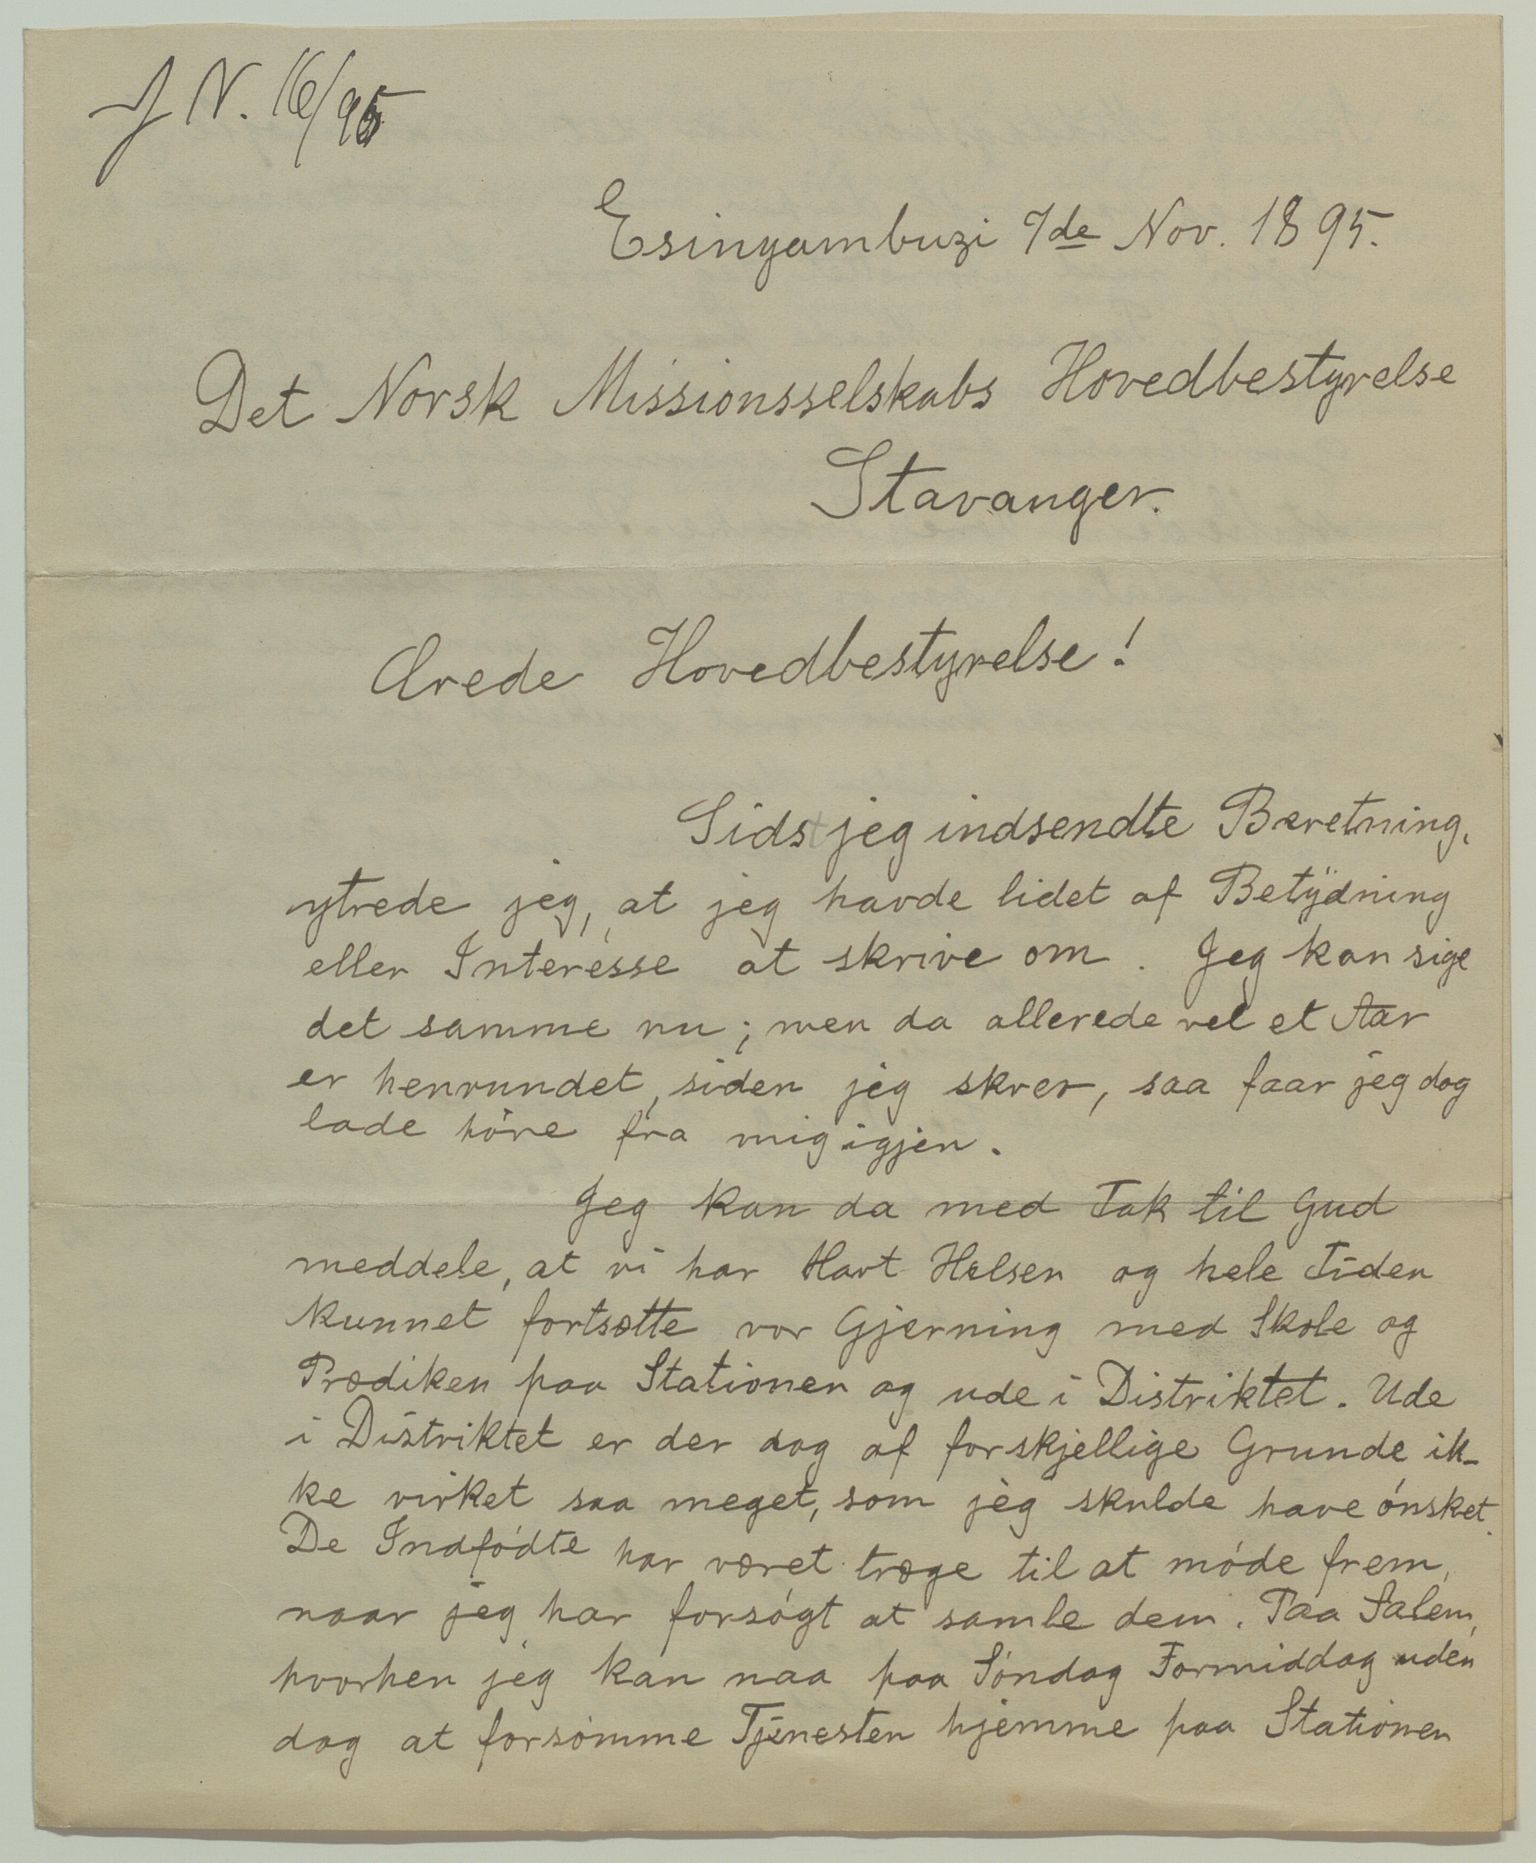 J N. 16/95
Esinyambuzi 7de Nov. 1895.
Det Norsk Missionsselskabs Hovedbestyrelse
Stavanger.
Ærede Hovedbestyrelse!
Sidst jeg indsendte Beretning,
ytrede jeg, at jeg havde lidet af Betydning
eller Interesse at skrive om. Jeg kan sige
det samme nu; men da allerede vel et Aar
er henrundet, siden jeg skrev, saa faar jeg dog
lade höre fra mig igjen.
Jeg kan da med Tak til Gud
meddele, at vi har Havt Helsen og hele Tiden
kunnet fortsætte vor Gjerning med Skole og
Prædiken paa Stationen og ude i Distriktet. Ude
i Distriktet er der dog af forskjellige Grunde ik-
ke virket saa meget, som jeg skulde have ónsket.
De Indfódte har været træge til at móde frem,
naar jeg har forsógt at samle dem. Paa Salem,
hvorhen jeg kan naa paa Sóndag Formiddag uden
dog at forsómme Tjenesten hjemme paa Stationen